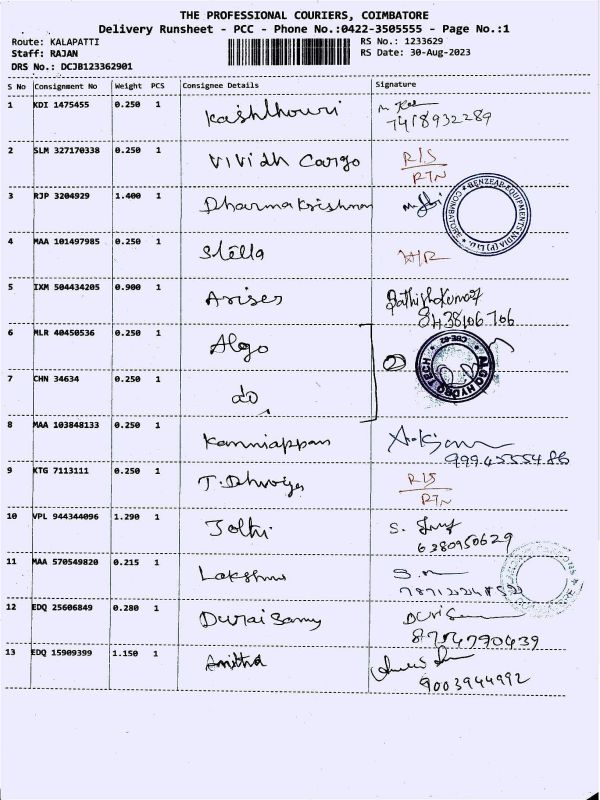 THE PROFESSIONAL COURIERS, COIMBATORE
Delivery Runsheet - PCC - Phone No.:0422-3505555 - Page No.:1
Route: KALAPATTI RS No.: 1233629
Staff: RAJAN RS Date: 30-Aug-2023
DRS No.: DCJB123362901
S No Consignment No Weight PCS Consignee Details Signature
1 KDI 1475455 0.250 1 Kashthouri
7418932289
2 SLM 327170338 0.250 1 Vividh Cargo R/S
RTN
3 RJP 3204929 1.400 1 Dharmakrishnan
BENZEAR EQUIPMENTS INDIA (P) LTD. COIMBATORE
4 MAA 101497985 0.250 1 Stella
5 IXM 504434205 0.900 1 Arises Sathishkumar
8438106706
6 MLR 40450536 0.250 1 Algo
ALGO HYDRO TECH CBE-62
7 CHN 34634 0.250 1 do 2
8 MAA 103848133 0.250 1 Kanniappan
9994555486
9 KTG 7113111 0.250 1 T. R/S
RTN
10 VPL 944344096 1.290 1 Jothi S.
6380950629
11 MAA 570549820 0.215 1 Lakshmi
12 EDQ 25606849 0.280 1 Duraisamy
8754790439
13 EDQ 15909399 1.150 1 Anitha
9003944992